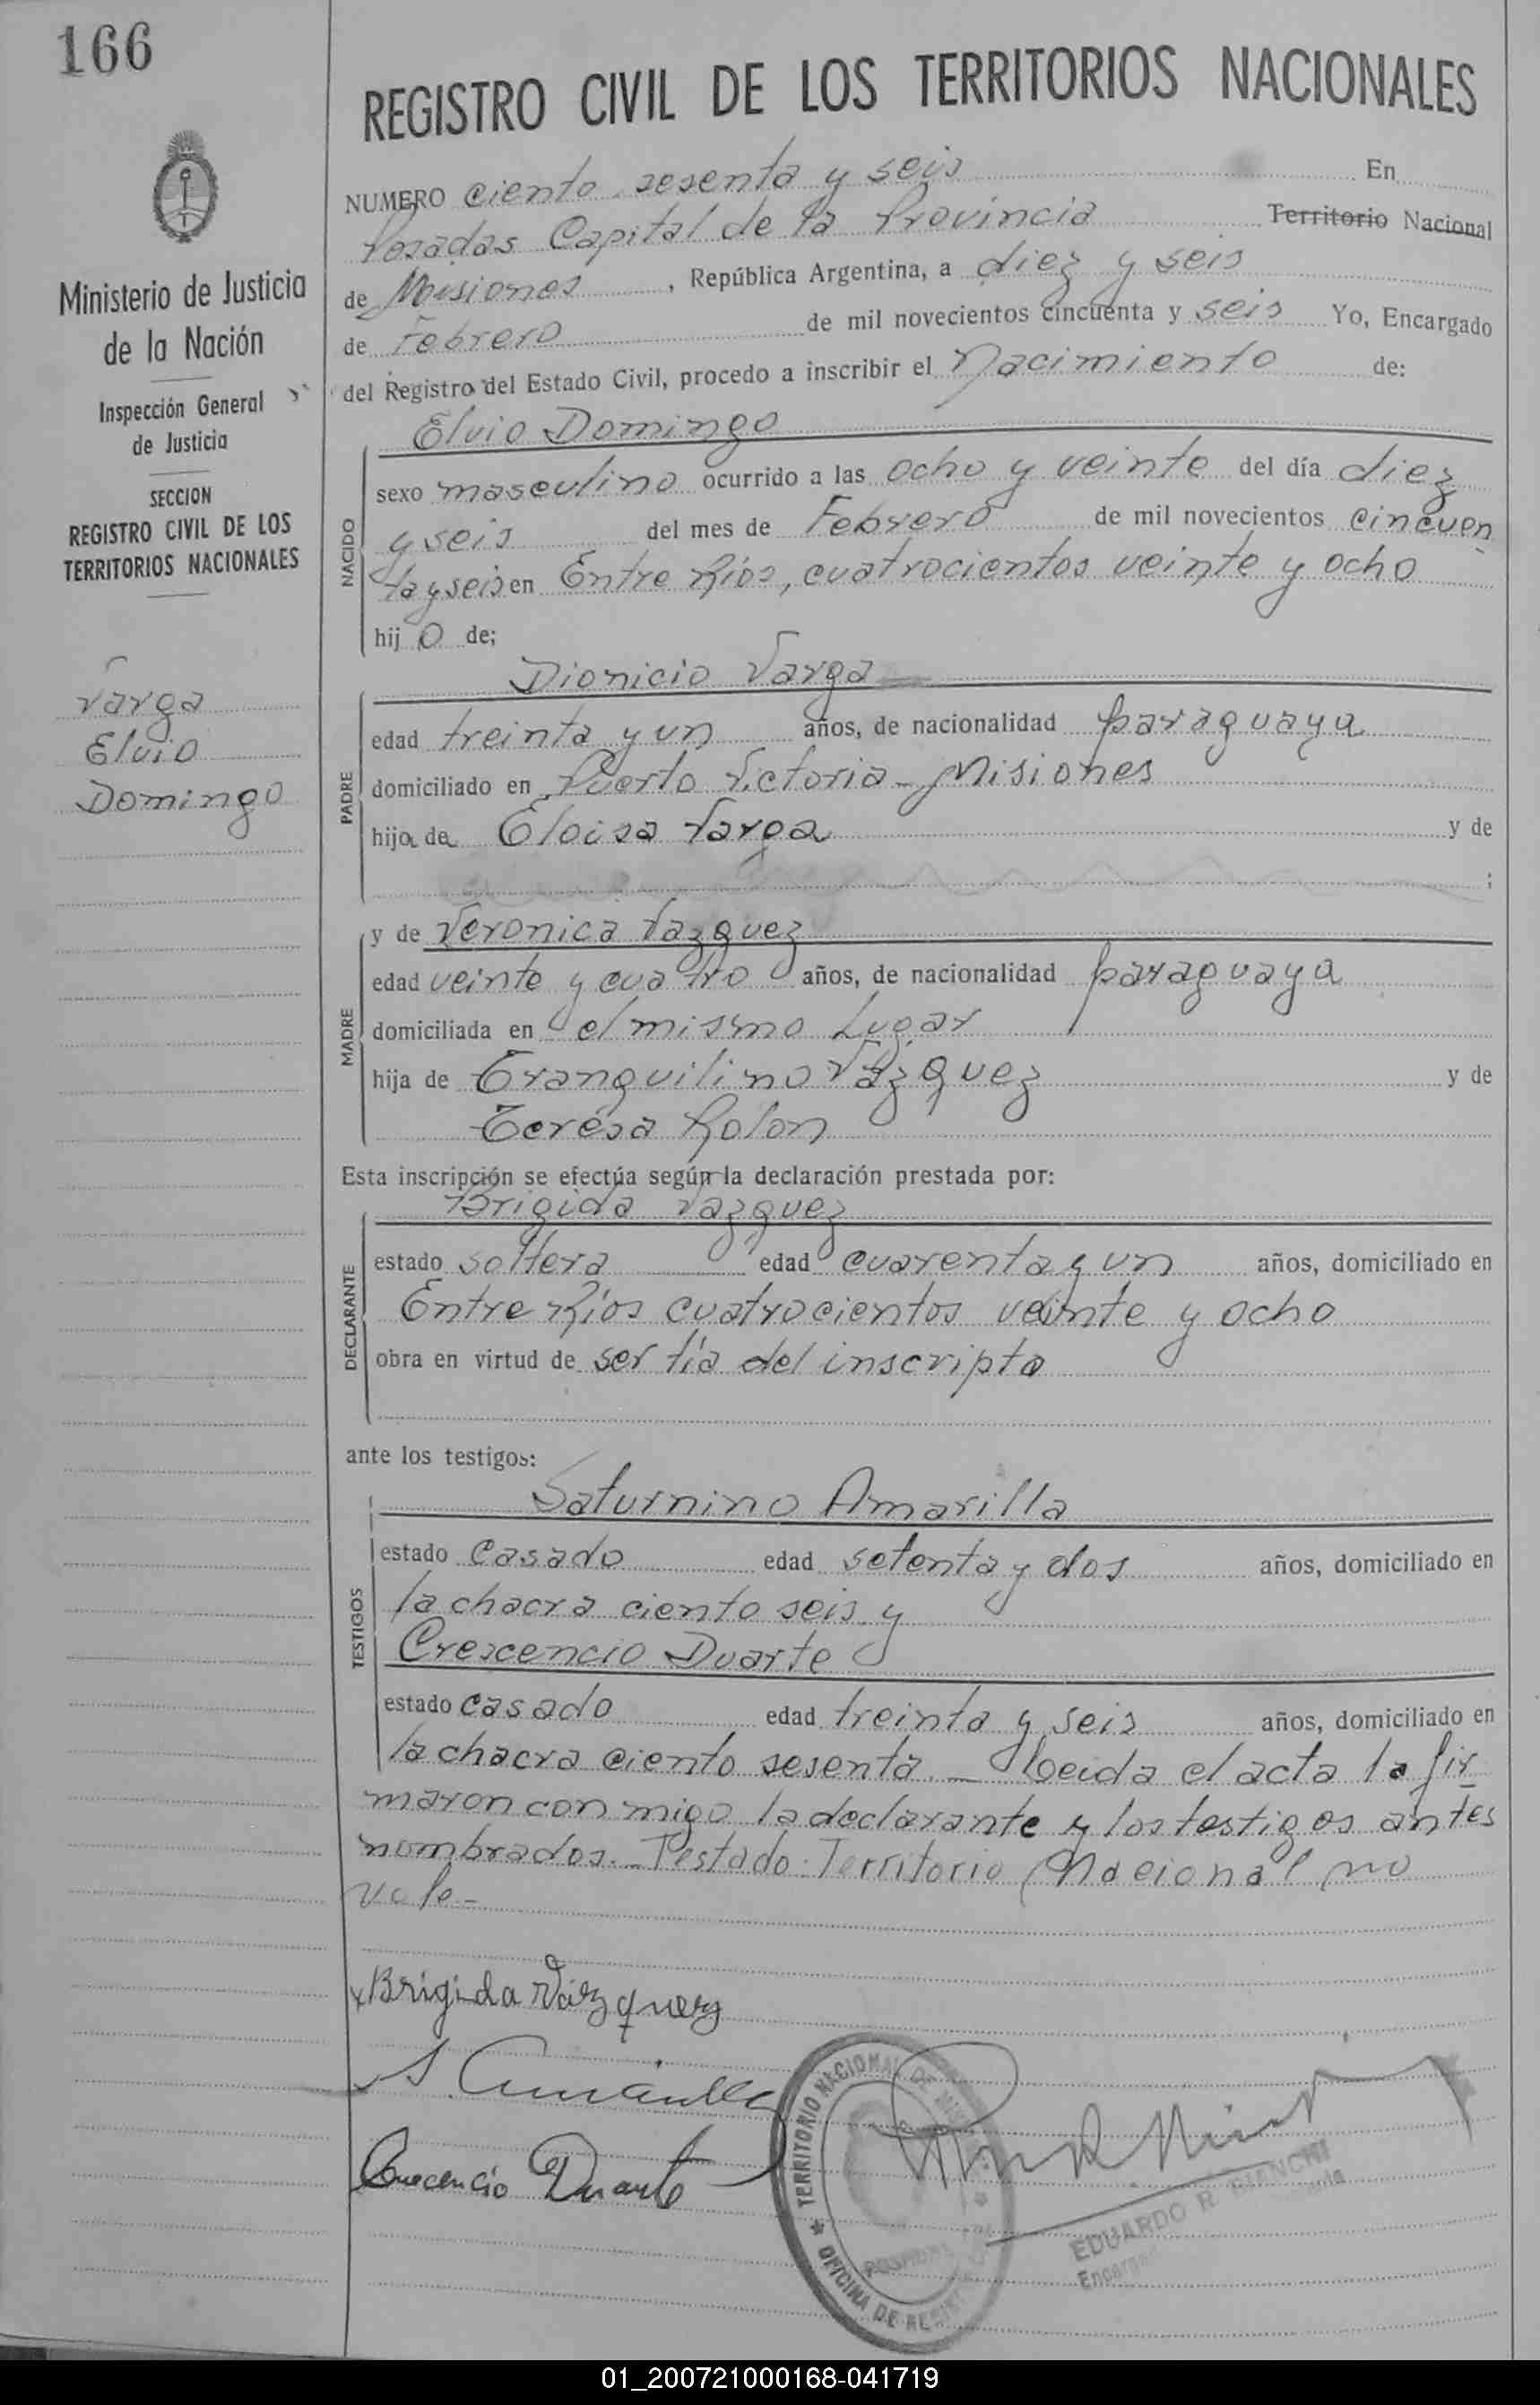 166
Ministerio de Justicia
de la Nación
Inspección General
de Justicia
SECCION
REGISTRO CIVIL DE LOS
TERRITORIOS NACIONALES
Varga
Elvio
Domingo
REGISTRO CIVIL DE LOS TERRITORIOS NACIONALES
NUMERO ciento sesenta y seis En
Posadas Capital de la Provincia Territorio Nacional
de Misiones, República Argentina, a diez y seis
de Febrero de mil novecientos cincuenta y seis Yo, Encargado
del Registro del Estado Civil, procedo a inscribir el Nacimiento de:
Elvio Domingo
NACIDO
sexo masculino ocurrido a las ocho y veinte del día diez
y seis del mes de Febrero de mil novecientos cincuen
ta y seis en Entre Ríos, cuatrocientos veinte y ocho
hijo de;
Dionicio Varga
PADRE
edad treinta y un años, de nacionalidad paraguaya
domiciliado en Puerto Victoria - Misiones
hijo de Eloisa Varga y de
;
MADRE
y de Veronica Vazquez
edad veinte y cuatro años, de nacionalidad paraguaya
domiciliada en el mismo Lugar
hija de Tranquilino Vázquez y de
Teresa Rolon
Esta inscripción se efectúa según la declaración prestada por:
Brigida Vazquez
DECLARANTE
estado soltera edad cuarenta y un años, domiciliado en
Entre Ríos cuatrocientos veinte y ocho
obra en virtud de ser tía del inscripto
ante los testigos:
Saturnino Amarilla
TESTIGOS
estado casado edad setenta y dos años, domiciliado en
la chacra ciento seis y
Crescencio Duarte
estado casado edad treinta y seis años, domiciliado en
la chacra ciento sesenta _ Leida el acta la fir
maron con migo la declarante y los testigos antes
nombrados. - Testado: Territorio Nacional no
vale -
x Brigida Vázquez
S. Amarilla
Crecencio Duarte
TERRITORIO NACIONAL DE
OFICINA DE
POSADAS
EDUARDO R. BIANCHI
01_200721000168-041719